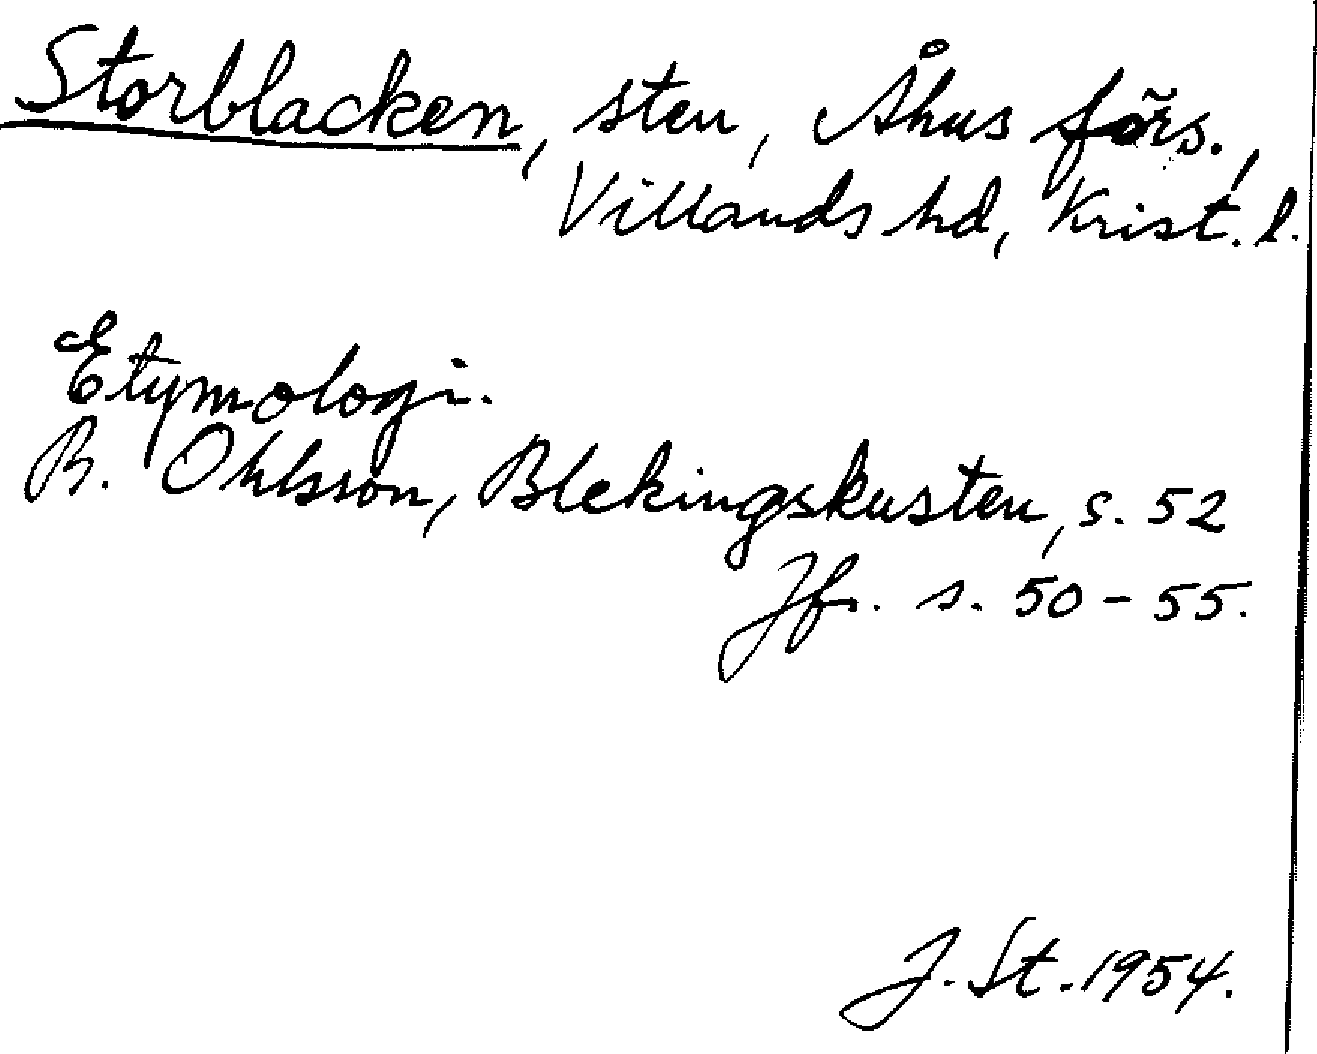 Storblacken, sten, Åhus förs.,
Villands hd, Krist. l.
Etymologi.
B. Ohlsson, Blekingskusten, s. 52
Jfr. s. 50-55.
J. St. 1954.